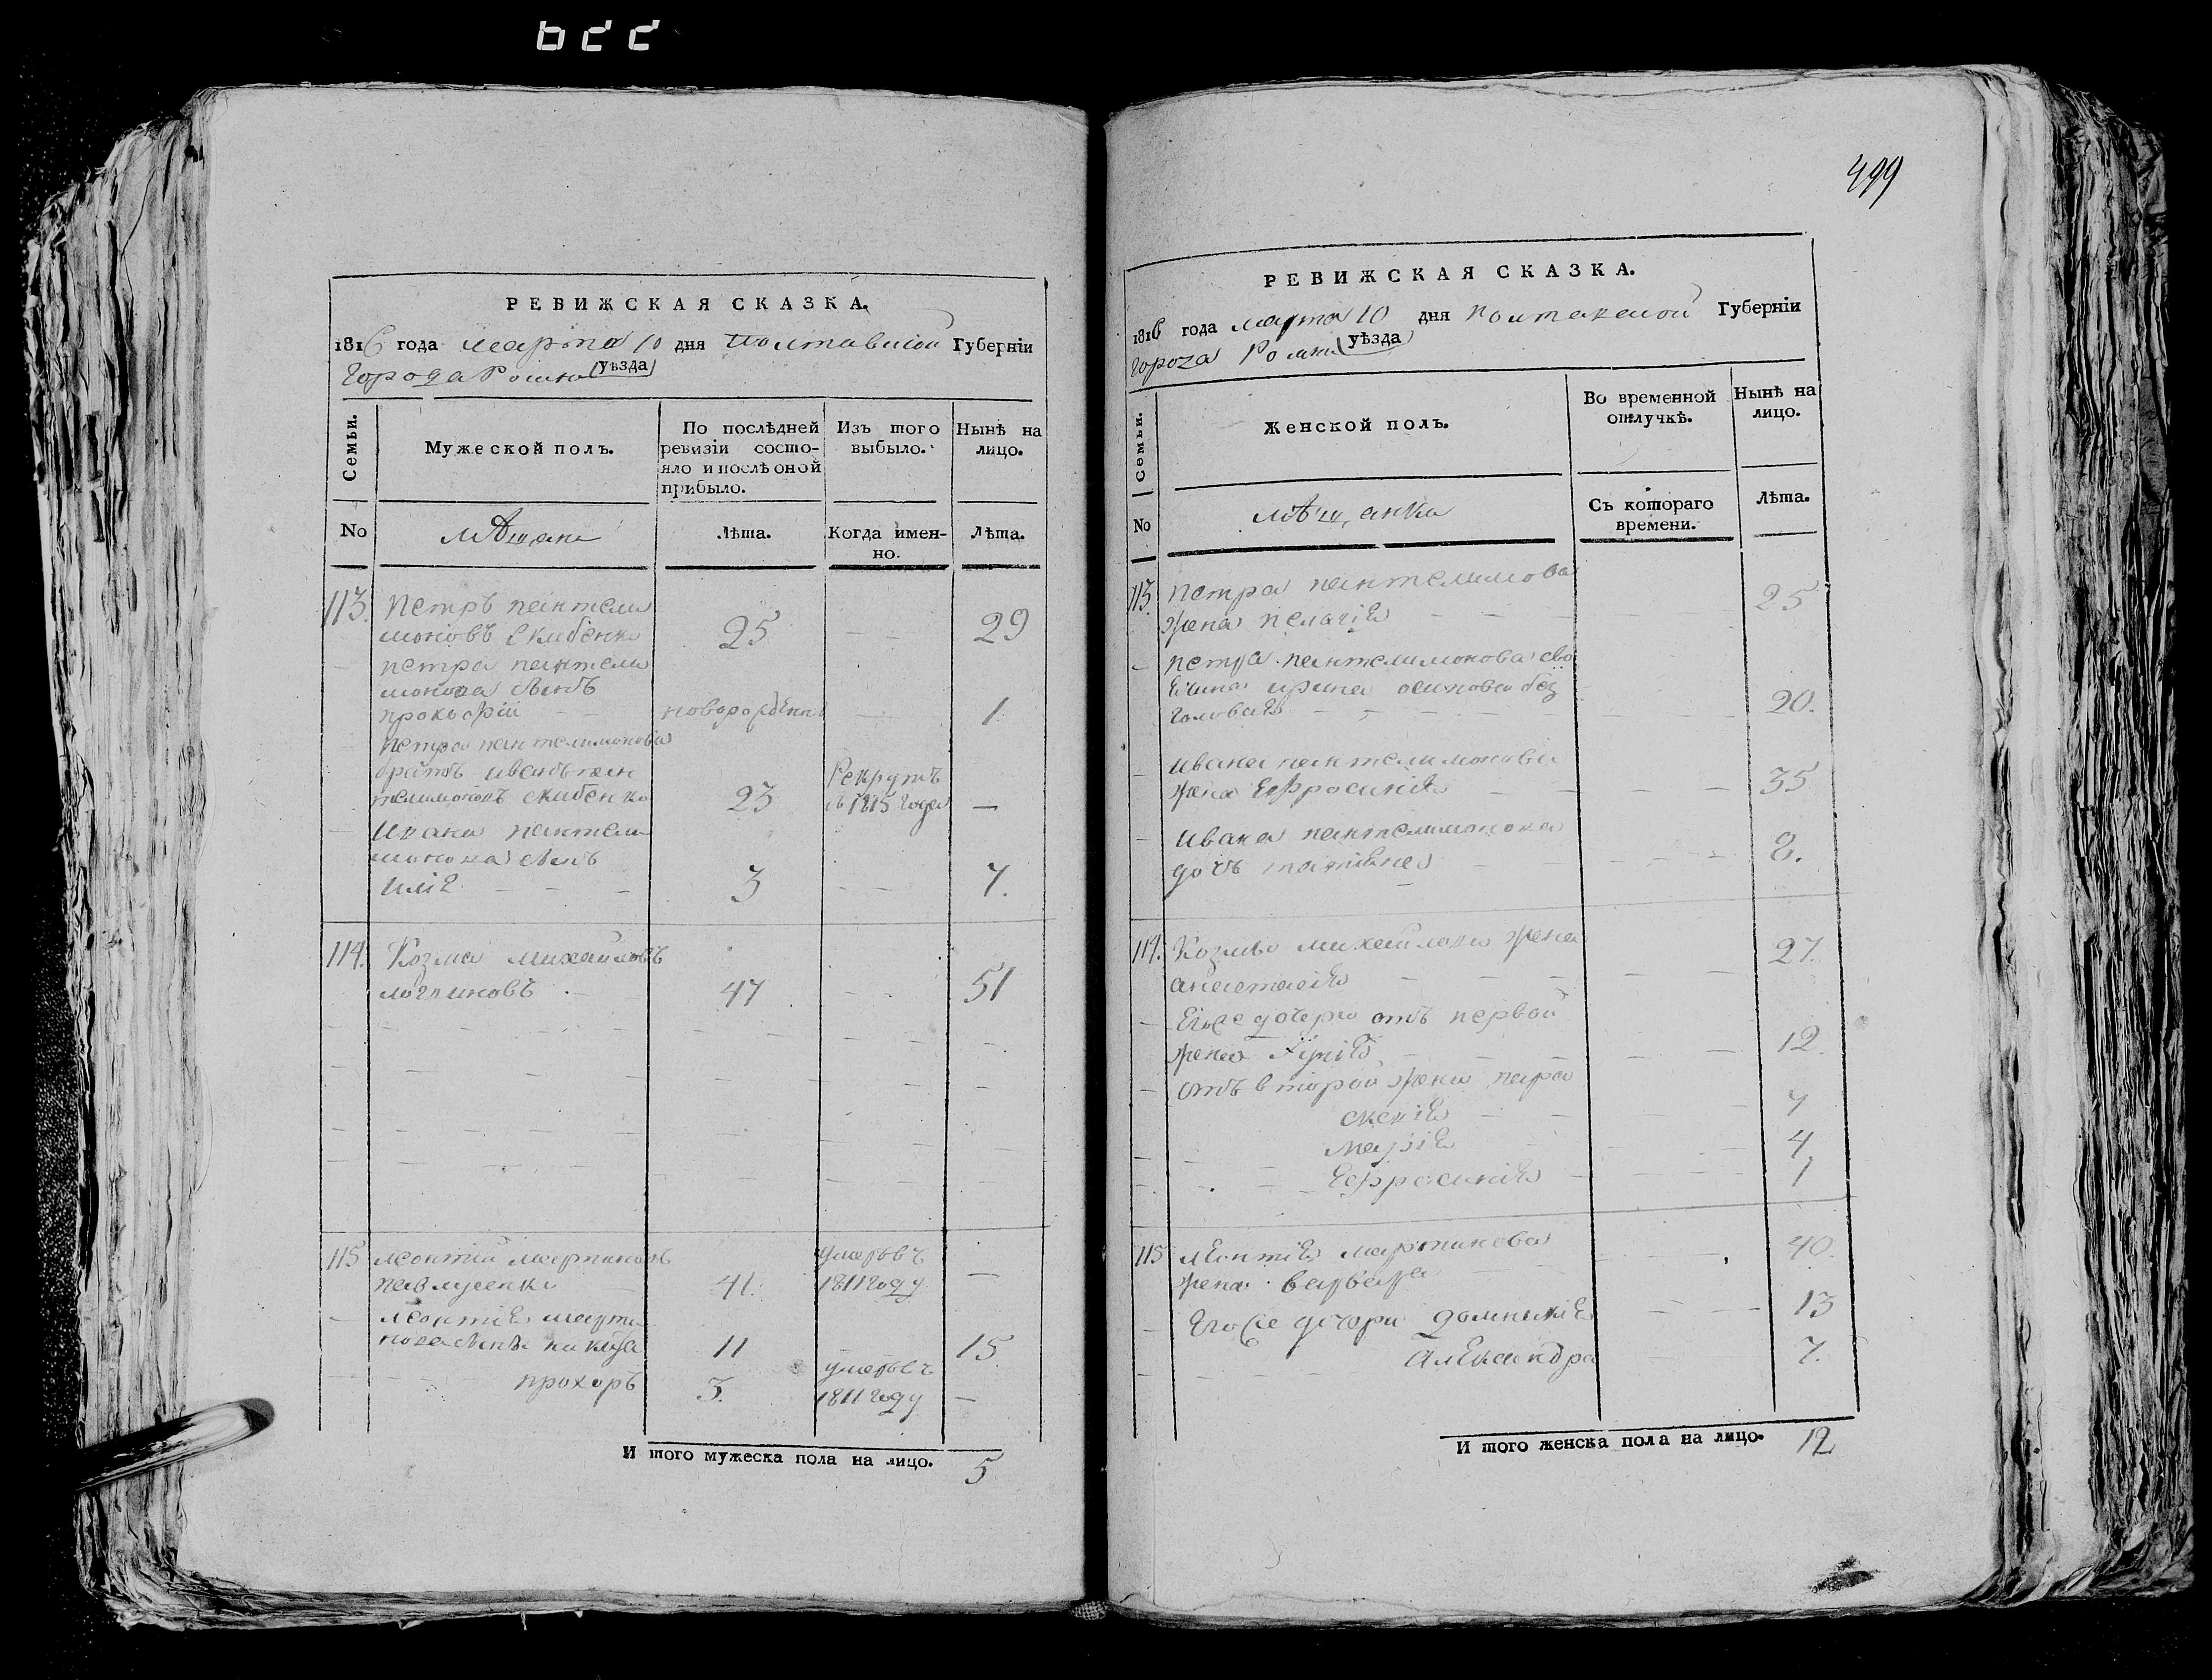 499
РЕВИЖСКАЯ СКАЗКА.
1816 года марта 10 дня Полтавской Губернiи
Города Ромна уѣзда
Семьи.
Мужеской полъ.
По послѣдней
ревизiи состо-
яло и послѣ оной
прибыло.
Изъ того
выбыло.
Нынѣ на
лицо.
No
мѣщане
Лѣта.
Когда имен-
но.
Лѣта.
113. Петръ пантели
моновъ Скибенко 25 29
петра пантели
монова сынъ
прокофiй новорожденъ 1
петра пантелимонова
братъ иванъ пан Рекрутъ
телимоновъ скибенко 23 въ 1815 года
Ивана пантели
монова сынъ
илiя 3 7.
114. Козма михайловъ
логвиновъ 47 51
115 леонтiй мартиновъ умеръ въ
павлусенко 41. 1811 году
леонтiя марти
нова сынъ никита 11 15
умеръ въ
прохоръ 3. 1811 году
И того мужеска пола на лицо. 5
РЕВИЖСКАЯ СКАЗКА.
1816 года марта 10 дня полтавской Губернiи
города Ромна уѣзда
Семьи.
Женской полъ.
Во временной
отлучкѣ.
Нынѣ на
лицо.
No
мѣщанки
Съ котораго
времени.
Лѣта.
113. петра пантелимонова
жена пелагiя 25
петра пантелимонова сво
ячина ирина осипова без
головая 20.
ивана пантелимонова
жена Ефросинiя 35
ивана пантелимонова
дочъ татiяна 8.
114. Козмы михайлова жена 27
анастасiя
Егоже дочери отъ первой
жены 12.
отъ второй жены пара
скевiя 7
марiя 4
Ефросинiя 1
115 леонтiя мартинова 40.
жена варвара
Егоже дочери домникiя 13
александра 7.
И того женска пола на лицо. 12